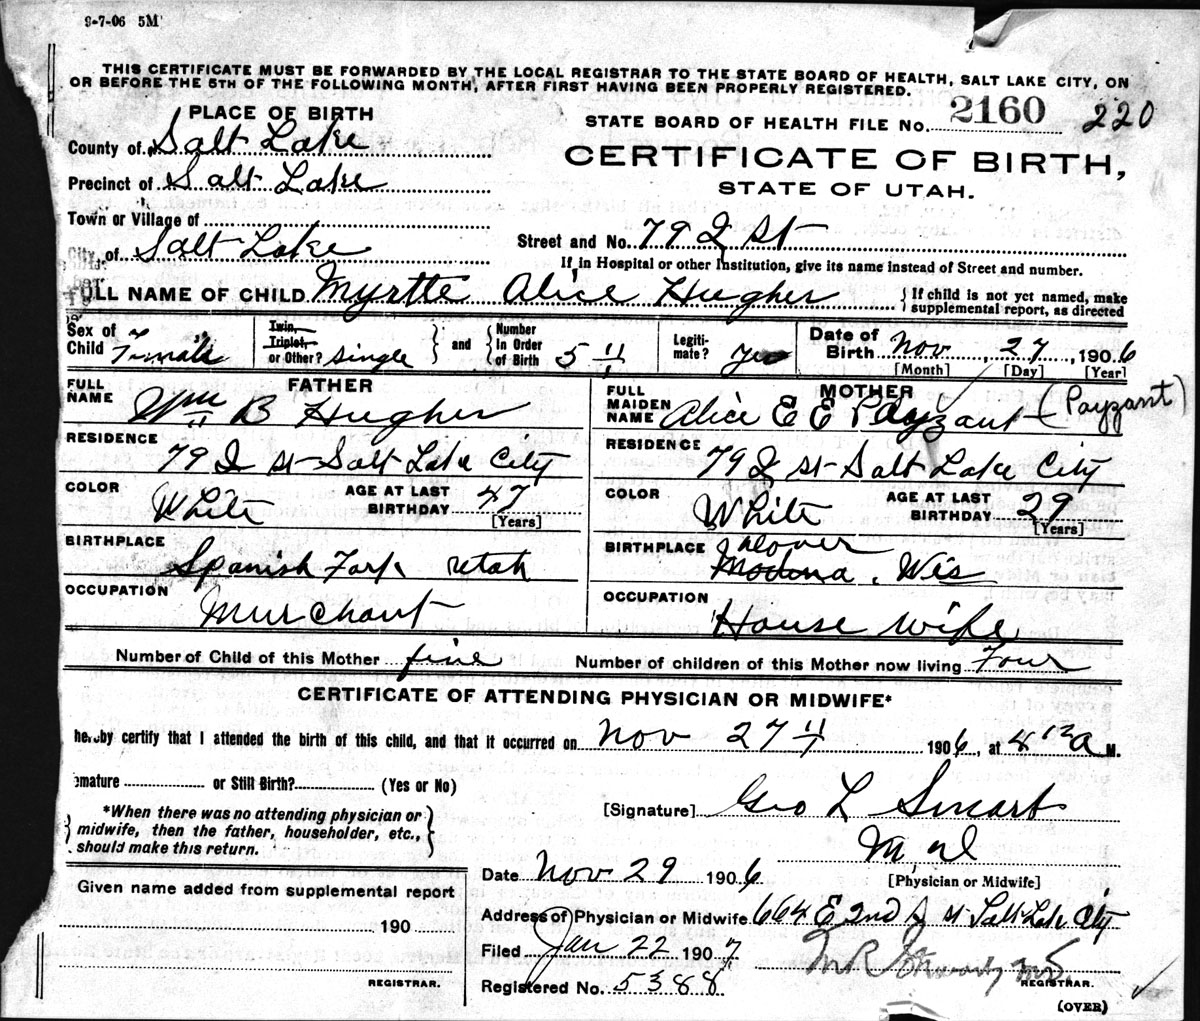 9-7-06 5M
THIS CERTIFICATE MUST BE FORWARDED BY THE LOCAL REGISTRAR TO THE STATE BOARD OF HEALTH, SALT LAKE CITY, ON
OR BEFORE THE 5TH OF THE FOLLOWING MONTH, AFTER FIRST HAVING BEEN PROPERLY REGISTERED.
PLACE OF BIRTH
STATE BOARD OF HEALTH FILE No. 2160 220
County of Salt Lake
CERTIFICATE OF BIRTH,
Precinct of Salt Lake
STATE OF UTAH.
Town or Village of
Street and No. 79 I St
City of Salt Lake
If in Hospital or other Institution, give its name instead of Street and number.
FULL NAME OF CHILD Myrtte Alice Hugher } If child is not yet named, make supplemental report, as directed
Sex of Child Female Twin, Triplet, or Other? Single } and { Number in Order of Birth 5 Legiti-mate? yes Date of Birth Nov, 27, 1906
[Month] [Day] [Year]
FATHER MOTHER
FULL NAME Wm B Hugher FULL MAIDEN NAME Alice E E Payzant (Payzant)
RESIDENCE 79 I St Salt Lake City RESIDENCE 79 I St Salt Lake City
COLOR White AGE AT LAST BIRTHDAY 47 [Years] COLOR White AGE AT LAST BIRTHDAY 29 [Years]
BIRTHPLACE Spanish Fork Utah BIRTHPLACE Wis
OCCUPATION Murchant OCCUPATION House wife
Number of Child of this Mother five Number of children of this Mother now living Four
CERTIFICATE OF ATTENDING PHYSICIAN OR MIDWIFE*
hereby certify that I attended the birth of this child, and that it occurred on Nov 27 1906, at 4 12 a M.
emature or Still Birth? (Yes or No)
*When there was no attending physician or
midwife, then the father, householder, etc.,
should make this return.
[Signature] Geo L Smart
M D
[Physician or Midwife]
Date Nov 29 1906
Given name added from supplemental report
190
REGISTRAR.
Address of Physician or Midwife 664 E 2nd St Salt Lake City
Filed Jan 22 1907
REGISTRAR.
Registered No. 5388
(OVER)